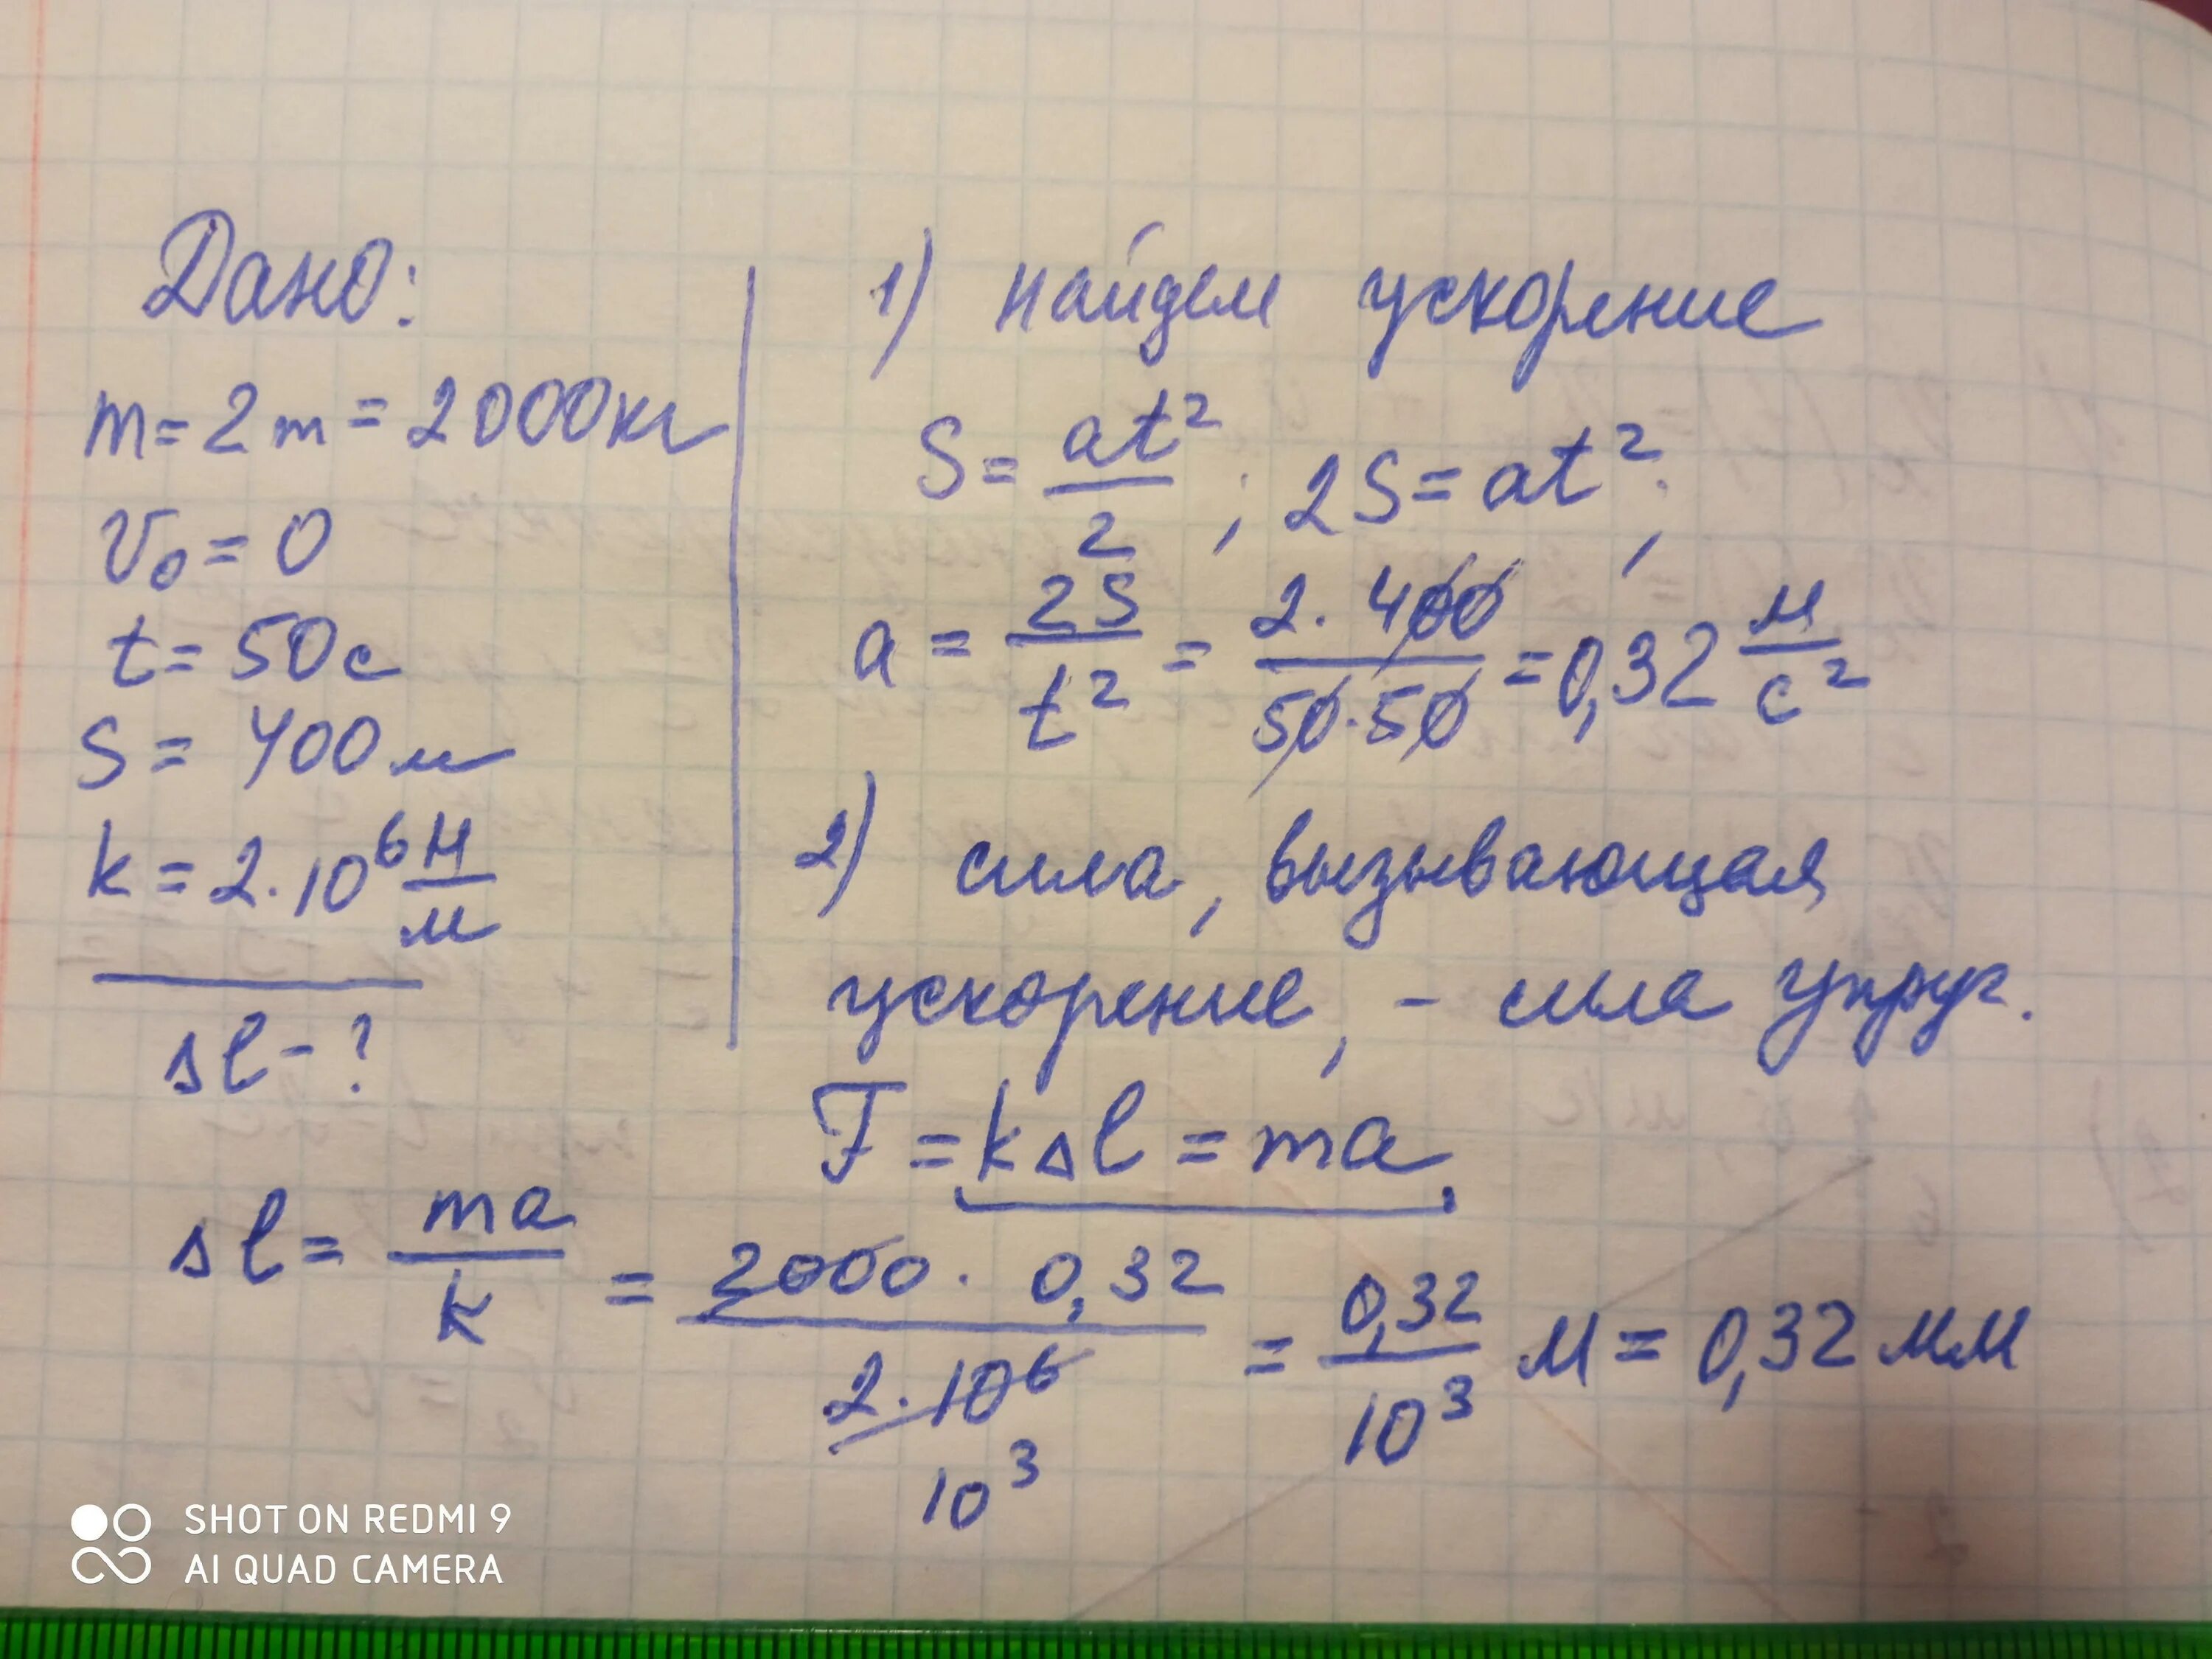 Дано:
m = 2т = 2000кг
V₀ = 0
t = 50с
S = 400м
k = 2·10⁶ Н/м
Δl - ?
1) найдем ускорение
S = at²/2 ; 2S = at²;
a = 2S/t² = 2·400/50·50 = 0,32 м/с²
2) сила, вызывающая
ускорение, - сила упруг.
F = kΔl = ma
Δl = ma/k = 2000·0,32/2·10⁶ = 0,32/10³ м = 0,32 мм
10³
SHOT ON REDMI 9
AI QUAD CAMERA